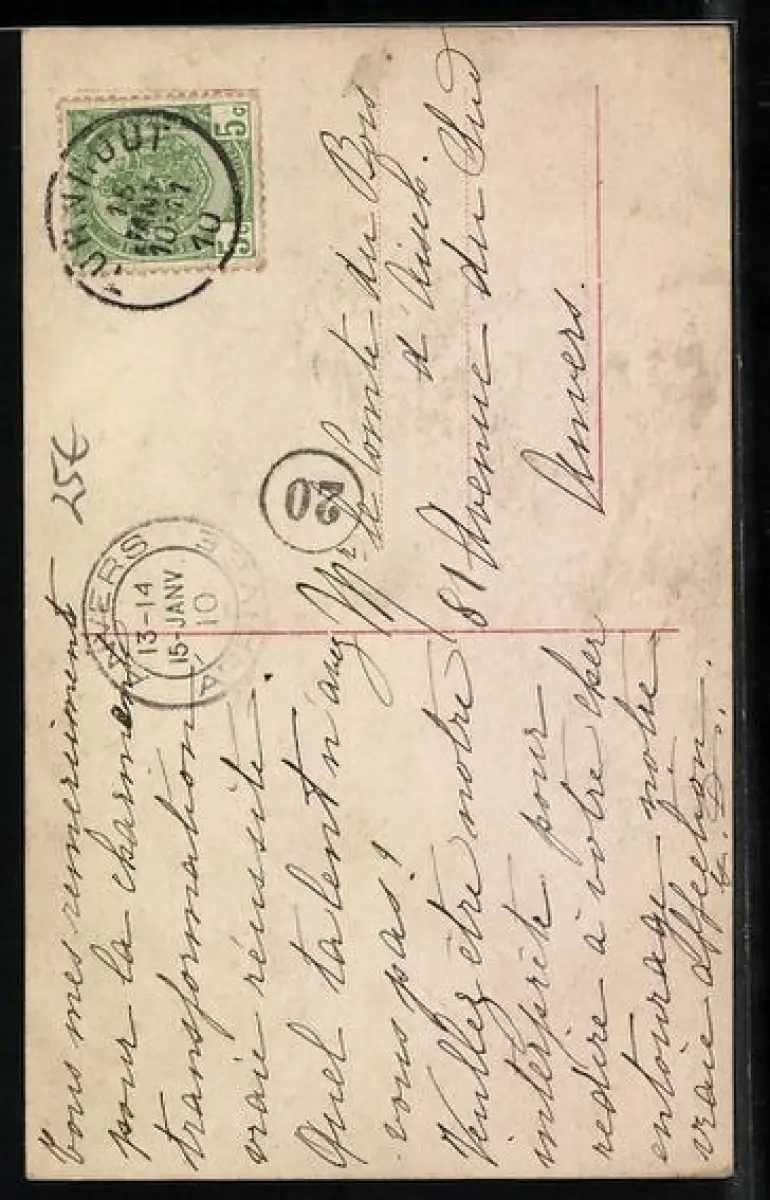 Tous mes remerciments
pour la charmante
transformation
vraie réussite.
Quel talent n'avez
-vous pas!
Veuillez être notre
interprète pour
redire à votre cher
entourage notre
vraie affection.
25€
TURNHOUT
15
JANV
10-11
10
5c
5c
ANVERS
13-14
15-JANV.
10
ANTWERPEN
20
Mr le Comte du Bois
d'Aissch.
81 Avenue du Sud
Anvers.